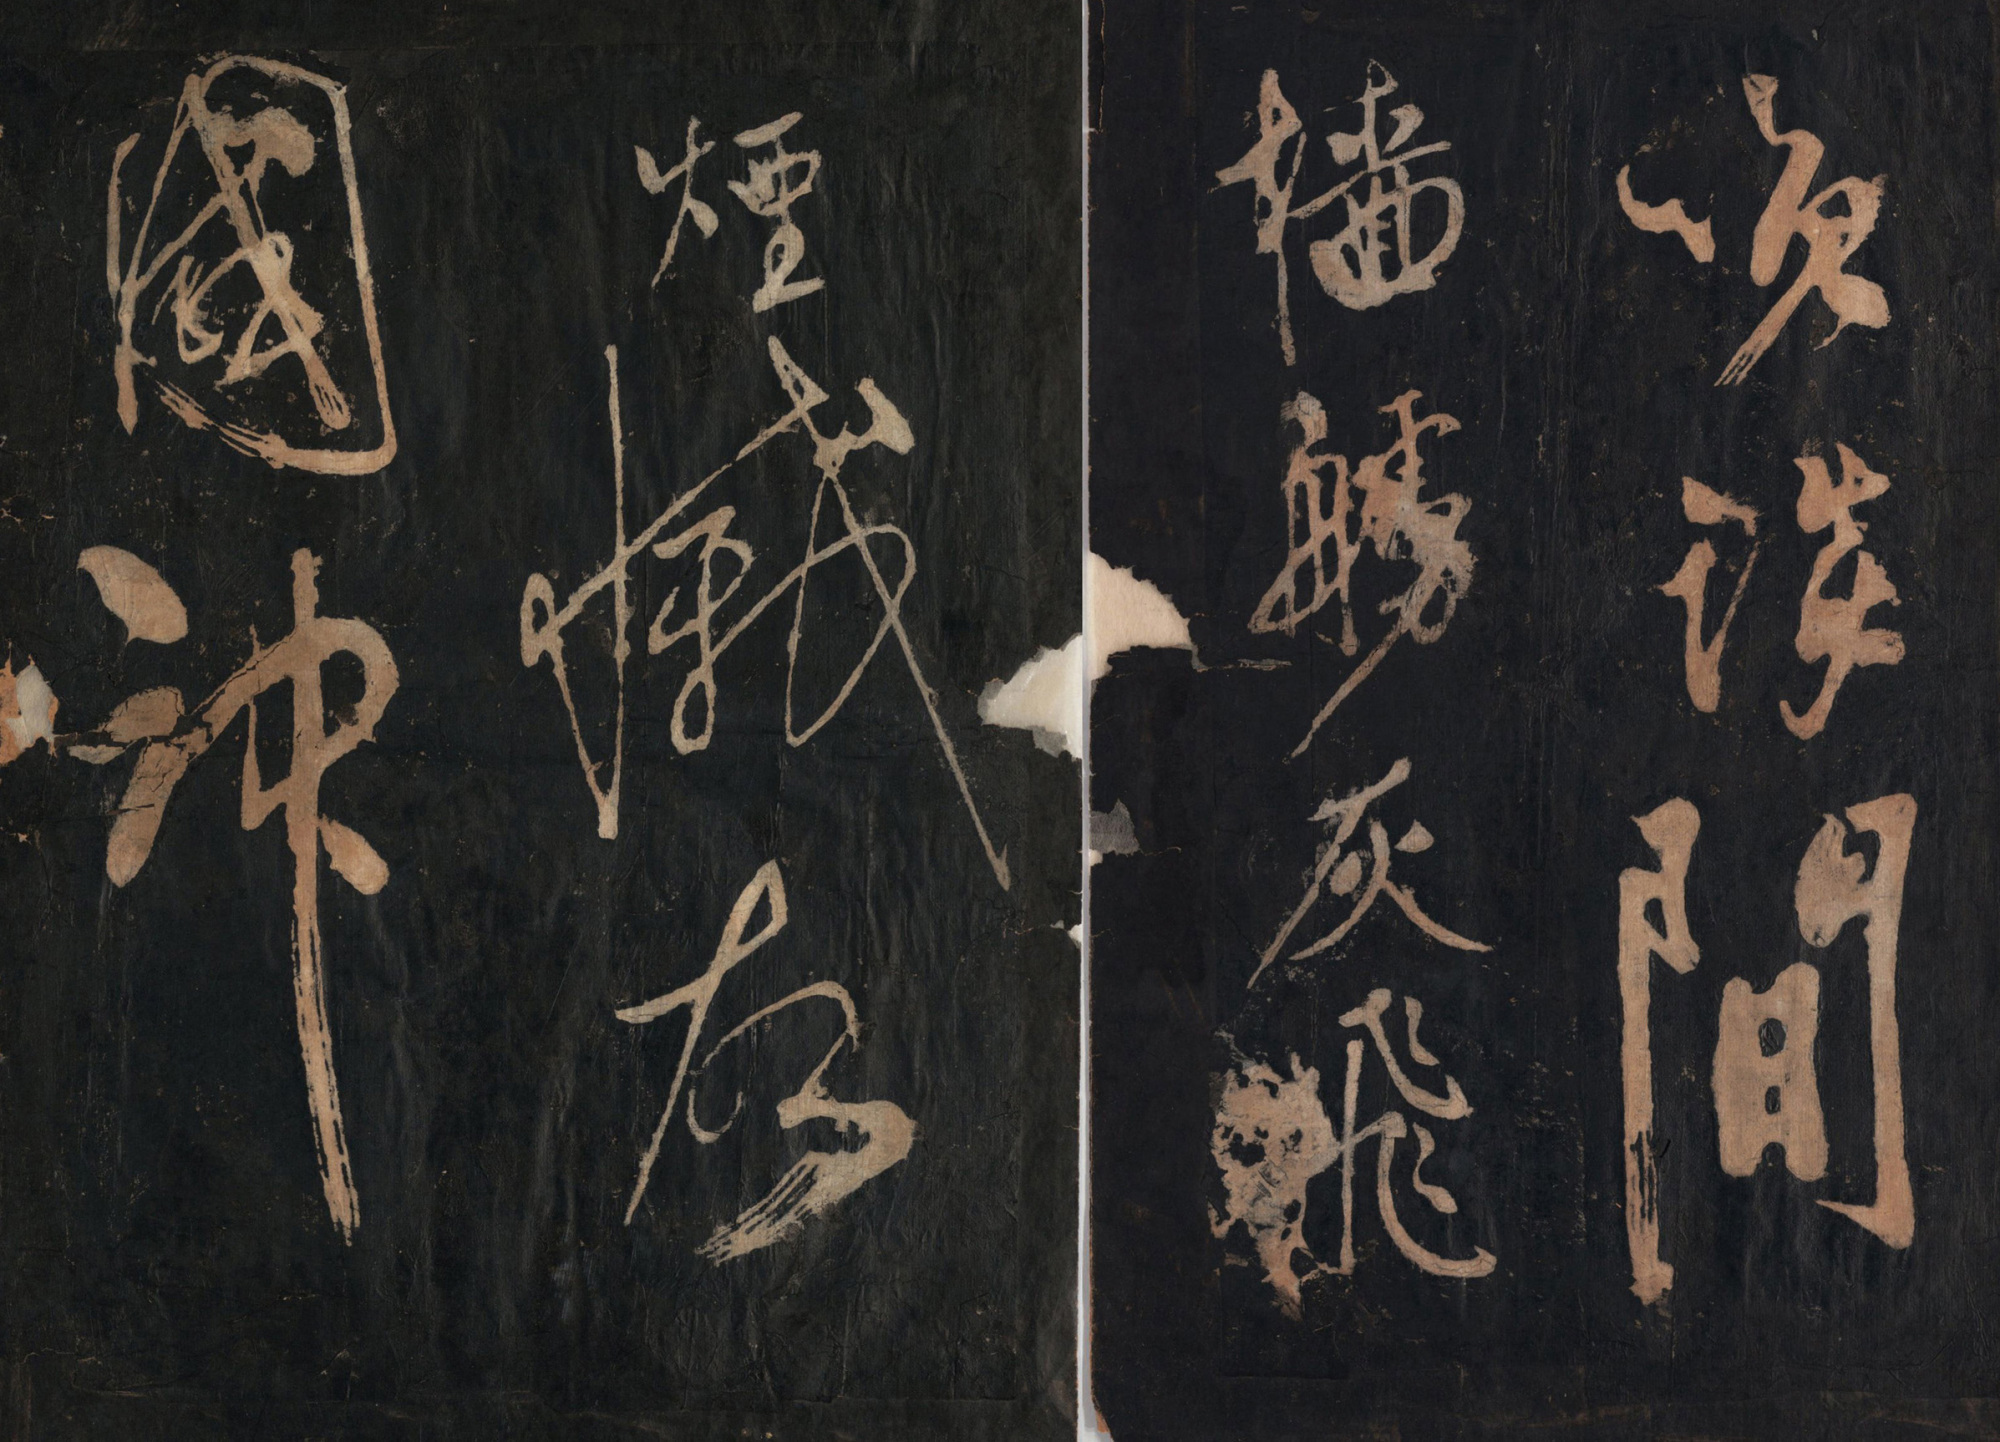 笑談間
檣艣灰飛
煙滅故
國神